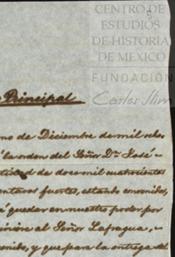 CENTRO DE
ESTUDIOS
DE HISTORIA
DE MEXICO
FUNDACIÓN
Carlos Slim
Principal
mo de Diciembre de mil ocho
la orden del Señor Dn José
tidad de doce mil cuatrocientos
centavos fuertes, estando
quedar en nuestro poder por
al Señor Lafragua,
y que para la entrega del